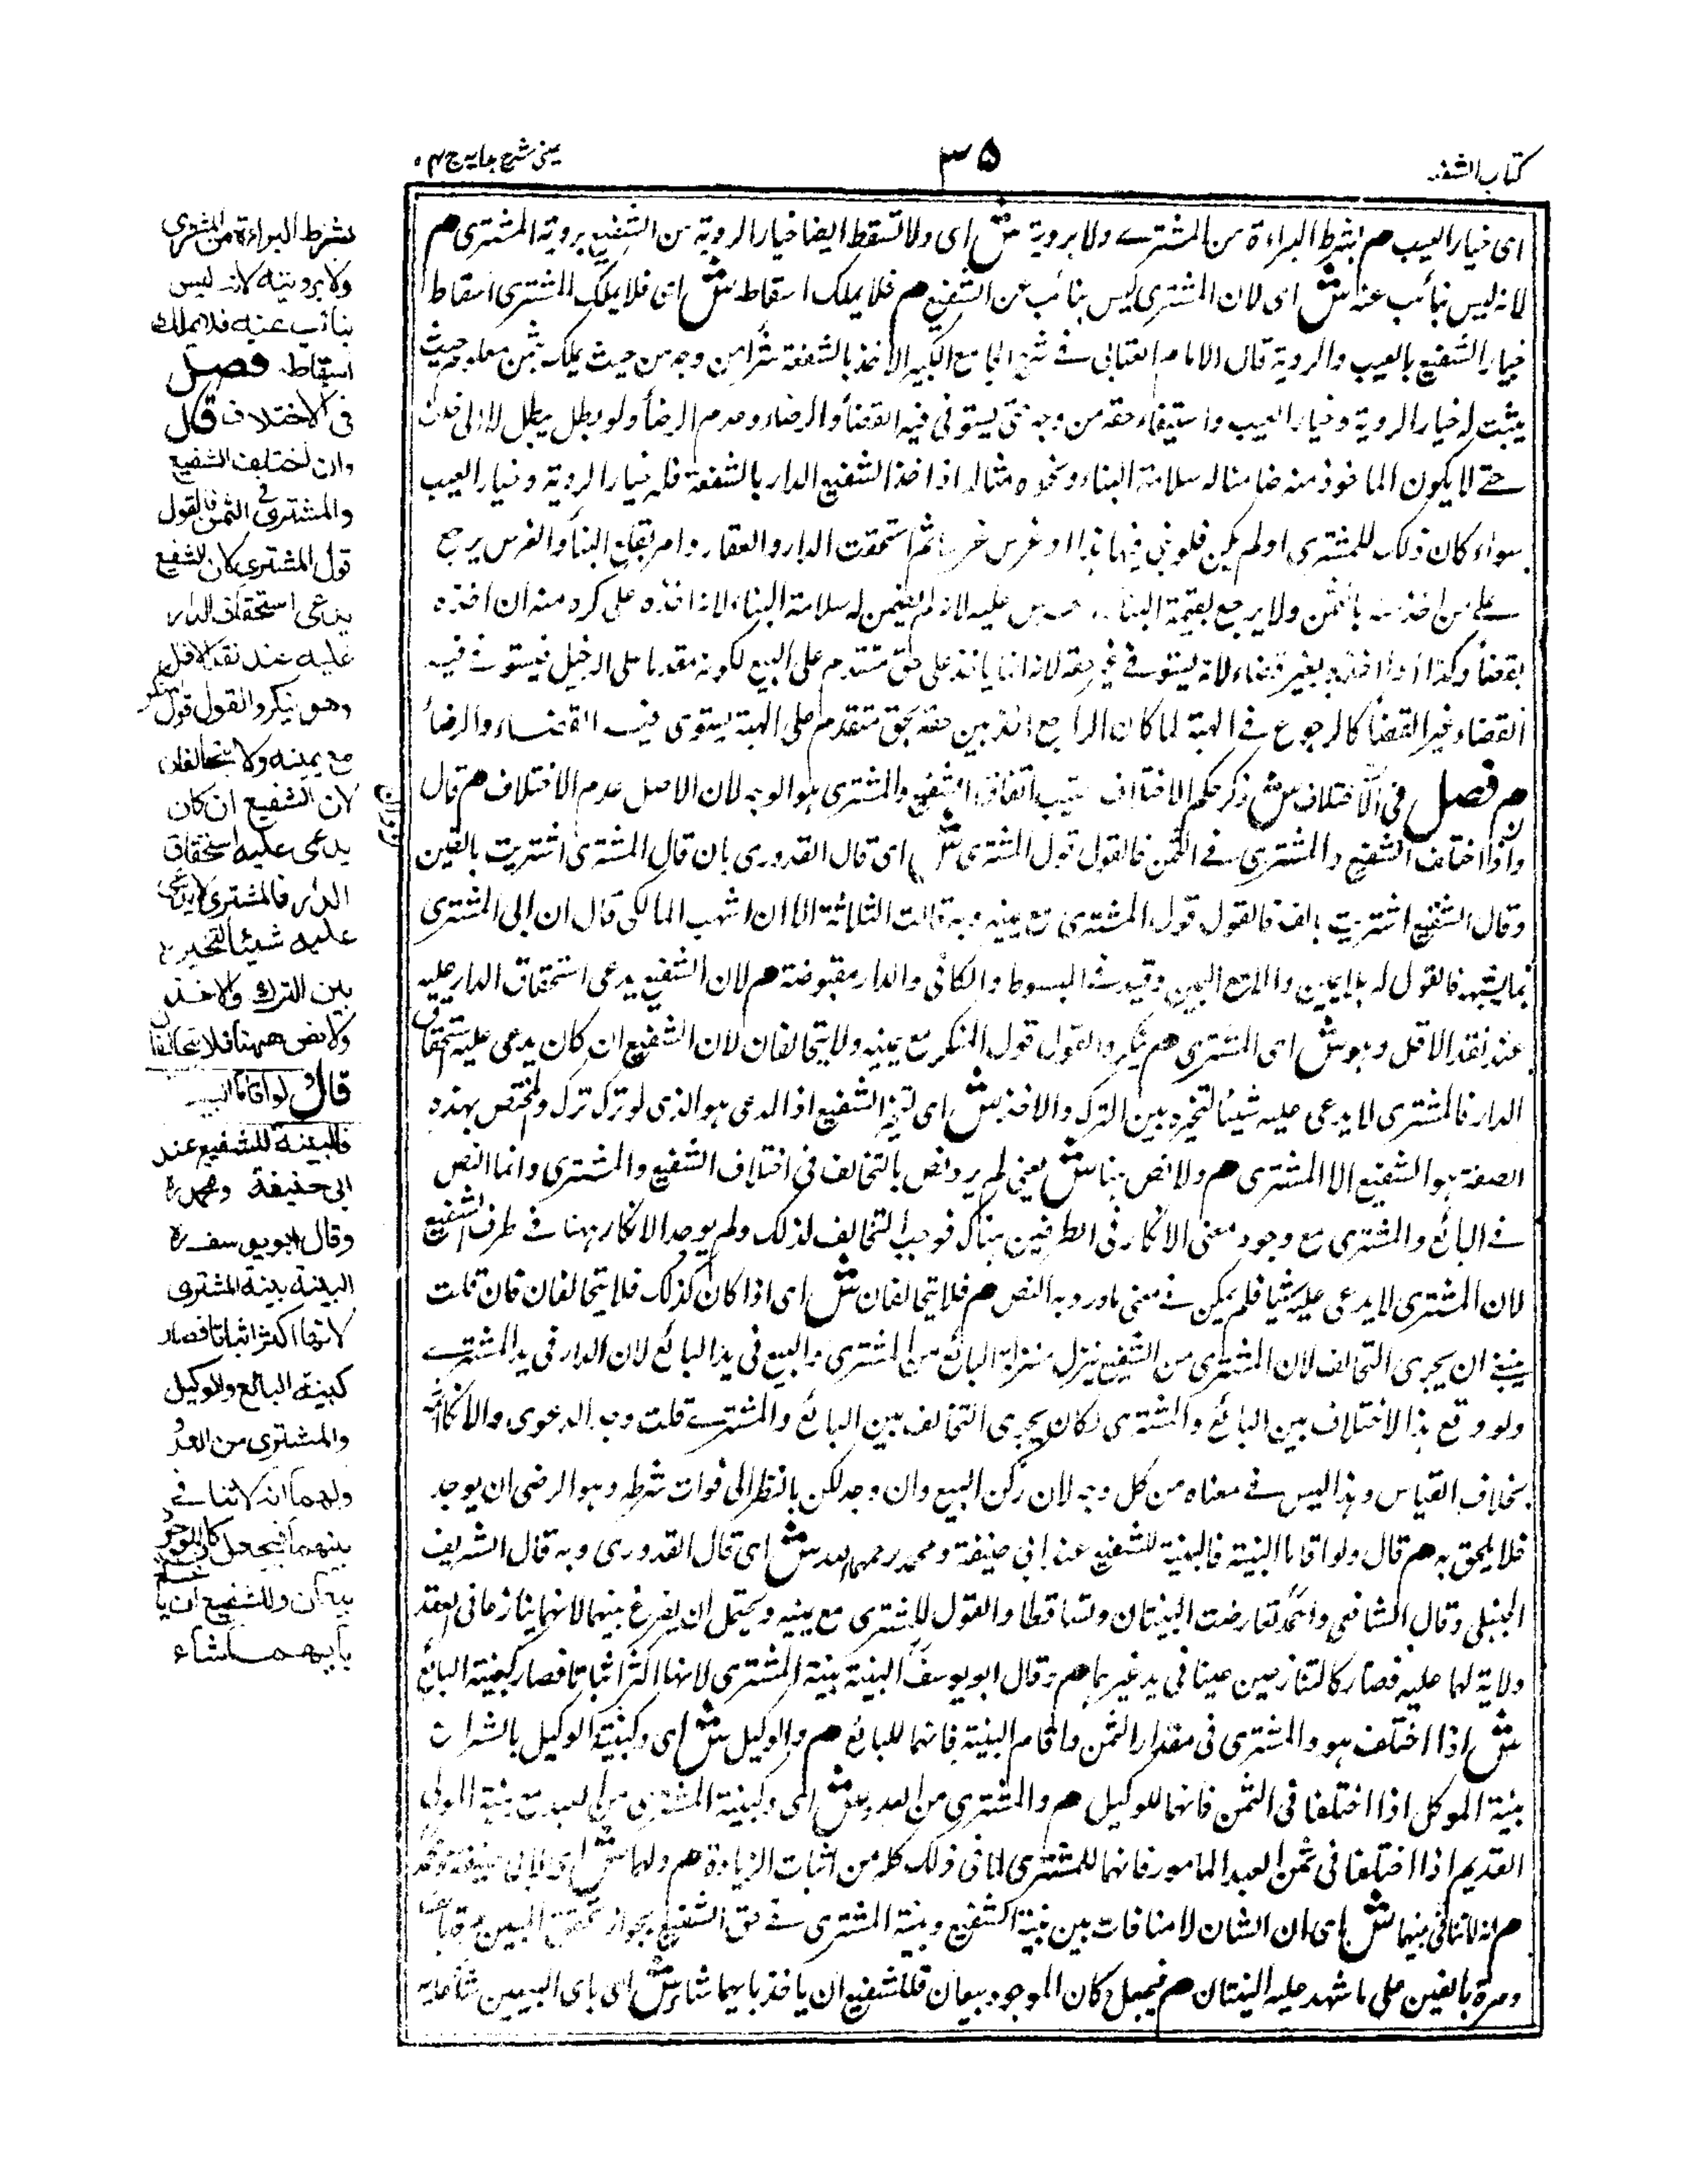 كتاب الشفعه
٣٥
عينى شرح هدايه ج ٤
اى خيار العيب هم بشرط البراءة من المشترى ولا بروية ش اى ولا تسقط ايضا خيار الروية من الشفيع بروية المشترى هم
لانه ليس بنائب عنه ش اى لان المشترى ليس بنائب عن الشفيع هم فلا يملك اسقاطه ش اى فلا يملك المشترى اسقاط
خيار الشفيع بالعيب والروية قال الامام العتابى فى شرح الجامع الكبير الاخذ بالشفعة شراء من وجه من حيث يملك بثمن معلوم حيث
يثبت له خيار الروية وخيار العيب واستيفاء حقه من وجه حتى يستوفى فيه القضاء والرضاء وعدم الرضاء ولو بطل يبطل لا الى خلف
حتى لا يكون الماخوذ منه ضامنا له سلامة البناء ونحوه مثاله اذا اخذ الشفيع الدار بالشفعة فله خيار الروية وخيار العيب
سواء كان ذلك للمشترى او لم يكن فلو بنى فيها بناء او غرس غرسا ثم استحقت الدار والعقار وامر بقلع البناء والغرس يرجع
على من اخذ منه بالثمن ولا يرجع بقيمة البناء عليه لانه لم يضمن له سلامة البناء لانه اخذه على كره منه ان اخذه
بقضاء وكذا اذا اخذه بغير قضاء لانه يستوفى غير حقه لانه انما ياخذ على حق متقدم على البيع لكونه مقدما على الدخيل فيستوى فيه
القضاء وغير القضاء كالرجوع فى الهبة لما كان الراجع اخذ بين حقه بحق متقدم على الهبة يستوى فيه القضاء والرضاء
هم فصل فى الاختلاف ش ذكر حكم الاختلاف عقيب اتفاق الشفيع والمشترى هو الوجه لان الاصل عدم الاختلاف هم قال
واذا اختلف الشفيع والمشترى فى الثمن فالقول قول المشترى ش اى قال القدورى بان قال المشترى اشتريت بالفين
وقال الشفيع اشتريت بالف فالقول قول المشترى مع يمينه وبه قالت الثلاثة الا ان اشهب المالكى قال ان اتى المشترى
بما يشبه فالقول له بلا يمين والا مع اليمين وقيد فى المبسوط والكافى والدار مقبوضة هم لان الشفيع يدعى استحقاق الدار عليه
عند نقد الاقل وهو ش اى المشترى هم ينكر والقول قول المنكر مع يمينه ولا يتحالفان لان الشفيع ان كان يدعى عليه استحقاق
الدار فالمشترى لا يدعى عليه شيئا لتخيره بين الترك والاخذ ش اى لتخير الشفيع اذ المدعى هو الذى لو ترك ترك والمختص بهذه
الصفة هو الشفيع الا المشترى هم ولا نص هنا ش يعنى لم يرد نص بالتحالف فى اختلاف الشفيع والمشترى وانما النص
فى البائع والمشترى مع وجود معنى الانكار فى الطرفين هناك فوجب التحالف لذلك ولم يوجد الانكار ههنا فى طرف الشفيع
لان المشترى لا يدعى عليه شيئا فلم يكن فى معنى ماورد به النص هم فلا يتحالفان ش اى اذا كان كذلك فلا يتحالفان فان قلت
ينبغى ان يجرى التحالف لان المشترى من الشفيع ينزل منزلة البائع من المشترى والبيع فى يد البائع لان الدار فى يد المشترى
ولو وقع هذا الاختلاف بين البائع والمشترى لكان يجرى التحالف بين البائع والمشترى قلت وجد الدعوى والانكار ثمه
بخلاف القياس وهذا ليس فى معناه من كل وجه لان ركن البيع وان وجد لكن بالنظر الى فوات شرطه وهو الرضى ان يوجد
فلا يلحق به هم قال ولو اقاما البينة فالبينة للشفيع عند ابى حنيفة ومحمد رحمهما الله ش اى قال القدورى وبه قال الشريف
الحنبلى وقال الشافعى واحمد تعارضت البينتان وتساقطا والقول للمشترى مع يمينه ويحتمل ان يقرع بينهما لانهما ينازعا فى العقد
ولاية لهما عليه فصار كالمتنازعين عينا فى يد غيرهما هم وقال ابو يوسف البينة بينة المشترى لانها اكثر اثباتا فصار كبينة البائع
ش اذا اختلف هو والمشترى فى مقدار الثمن واقام البينة فانها للبائع هم والوكيل ش اى وكبينة الوكيل بالشراء
بينة الموكل اذا اختلفا فى الثمن فانها للوكيل هم والمشترى من العدو ش اى وكبينة المشترى من العدو مع بينة المولى
القديم اذا اختلفا فى ثمن العبد المامور فانها للمشترى لما فى ذلك كله من اثبات الزيادة هم ولهما ش اى لابى حنيفة ومحمد
هم انه لا تنافى بينهما ش اى ان الشان لا منافات بين بينة الشفيع وبينة المشترى فى حق الشفيع بجواز تحقق البيعين
ومرة بالفين على ما شهد عليه البينتان هم فيجعل كان الموجود بيعان فللشفيع ان ياخذ بايهما شاء ش اى باى البيعين شاء
بشرط البراءة من المشترى
ولا برويته لانه ليس
بنائب عنه فلا يملك
اسقاطه فصل
فى الاختلاف قال
وان اختلف الشفيع
والمشترى فى الثمن فالقول
قول المشترى لان الشفيع
يدعى استحقاق الدار
عليه عند نقد الاقل
وهو ينكر والقول قول المنكر
مع يمينه ولا يتحالفان
لان الشفيع ان كان
يدعى عليه استحقاق
الدار فالمشترى لا يدعى
عليه شيئا لتخيره
بين الترك والاخذ
ولا نص ههنا فلا يتحالفان
قال ولو اقاما البينة
فالبينة للشفيع عند
ابى حنيفة ومحمد ره
وقال ابو يوسف ره
البينة بينة المشترى
لانها اكثر اثباتا فصار
كبينة البائع والوكيل
والمشترى من العدو
ولهما انه لا تنافى
بينهما فيجعل كان الموجود
بيعان وللشفيع ان ياخذ
بايهما شاء